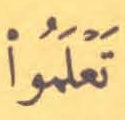 تَعْلَمُواْ